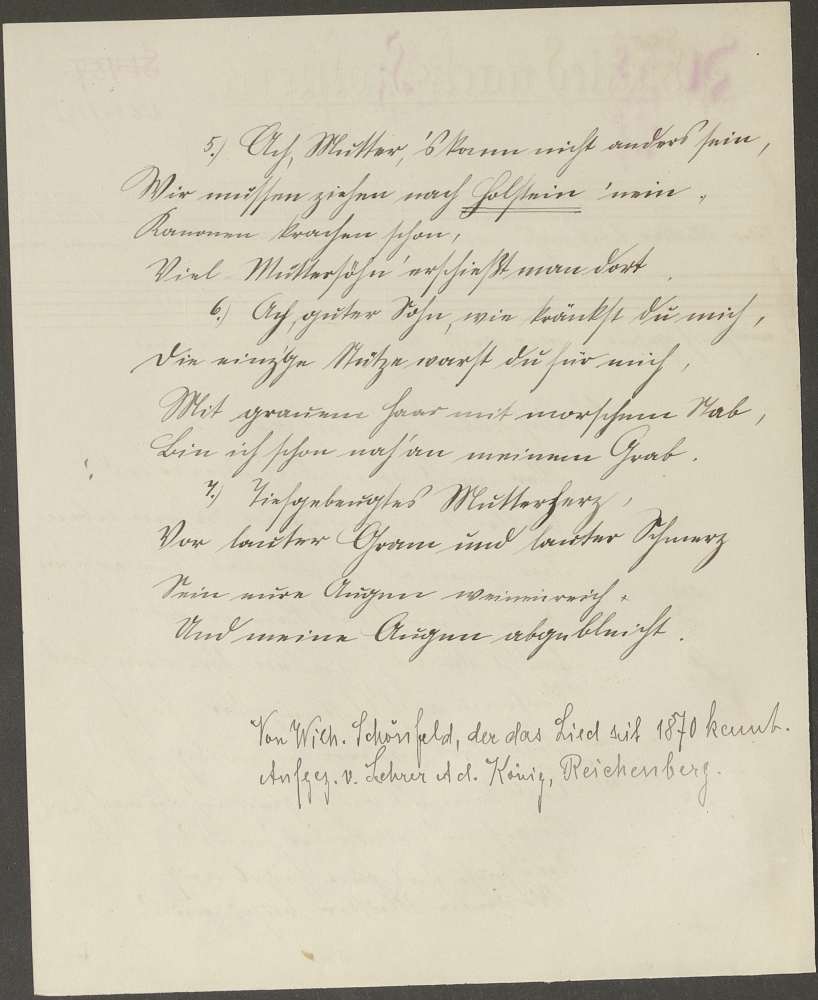 5.) Ach, Mutter, 's kann nicht anders sein,
Wir müssen ziehen nach Holstein 'nein,
Kanonen krachen schon,
Viel Muttersöhn' erschießt man dort.
6.) Ach, guter Sohn, wie kränkst du mich,
Die einz'ge Stütze warst du für mich,
Mit grauem Haar mit morschem Stab,
Bin ich schon nah' an meinem Grab.
7.) Tiefgebeugtes Mutterherz,
Vor lauter Gram und lauter Schmerz
Sein eure Augen
Und meine Augen abgebleicht.
Von Wilh. Schönfeld, der das Lied seit 1870 kennt.
Aufgez. v. Lehrer Ad. König, Reichenberg.